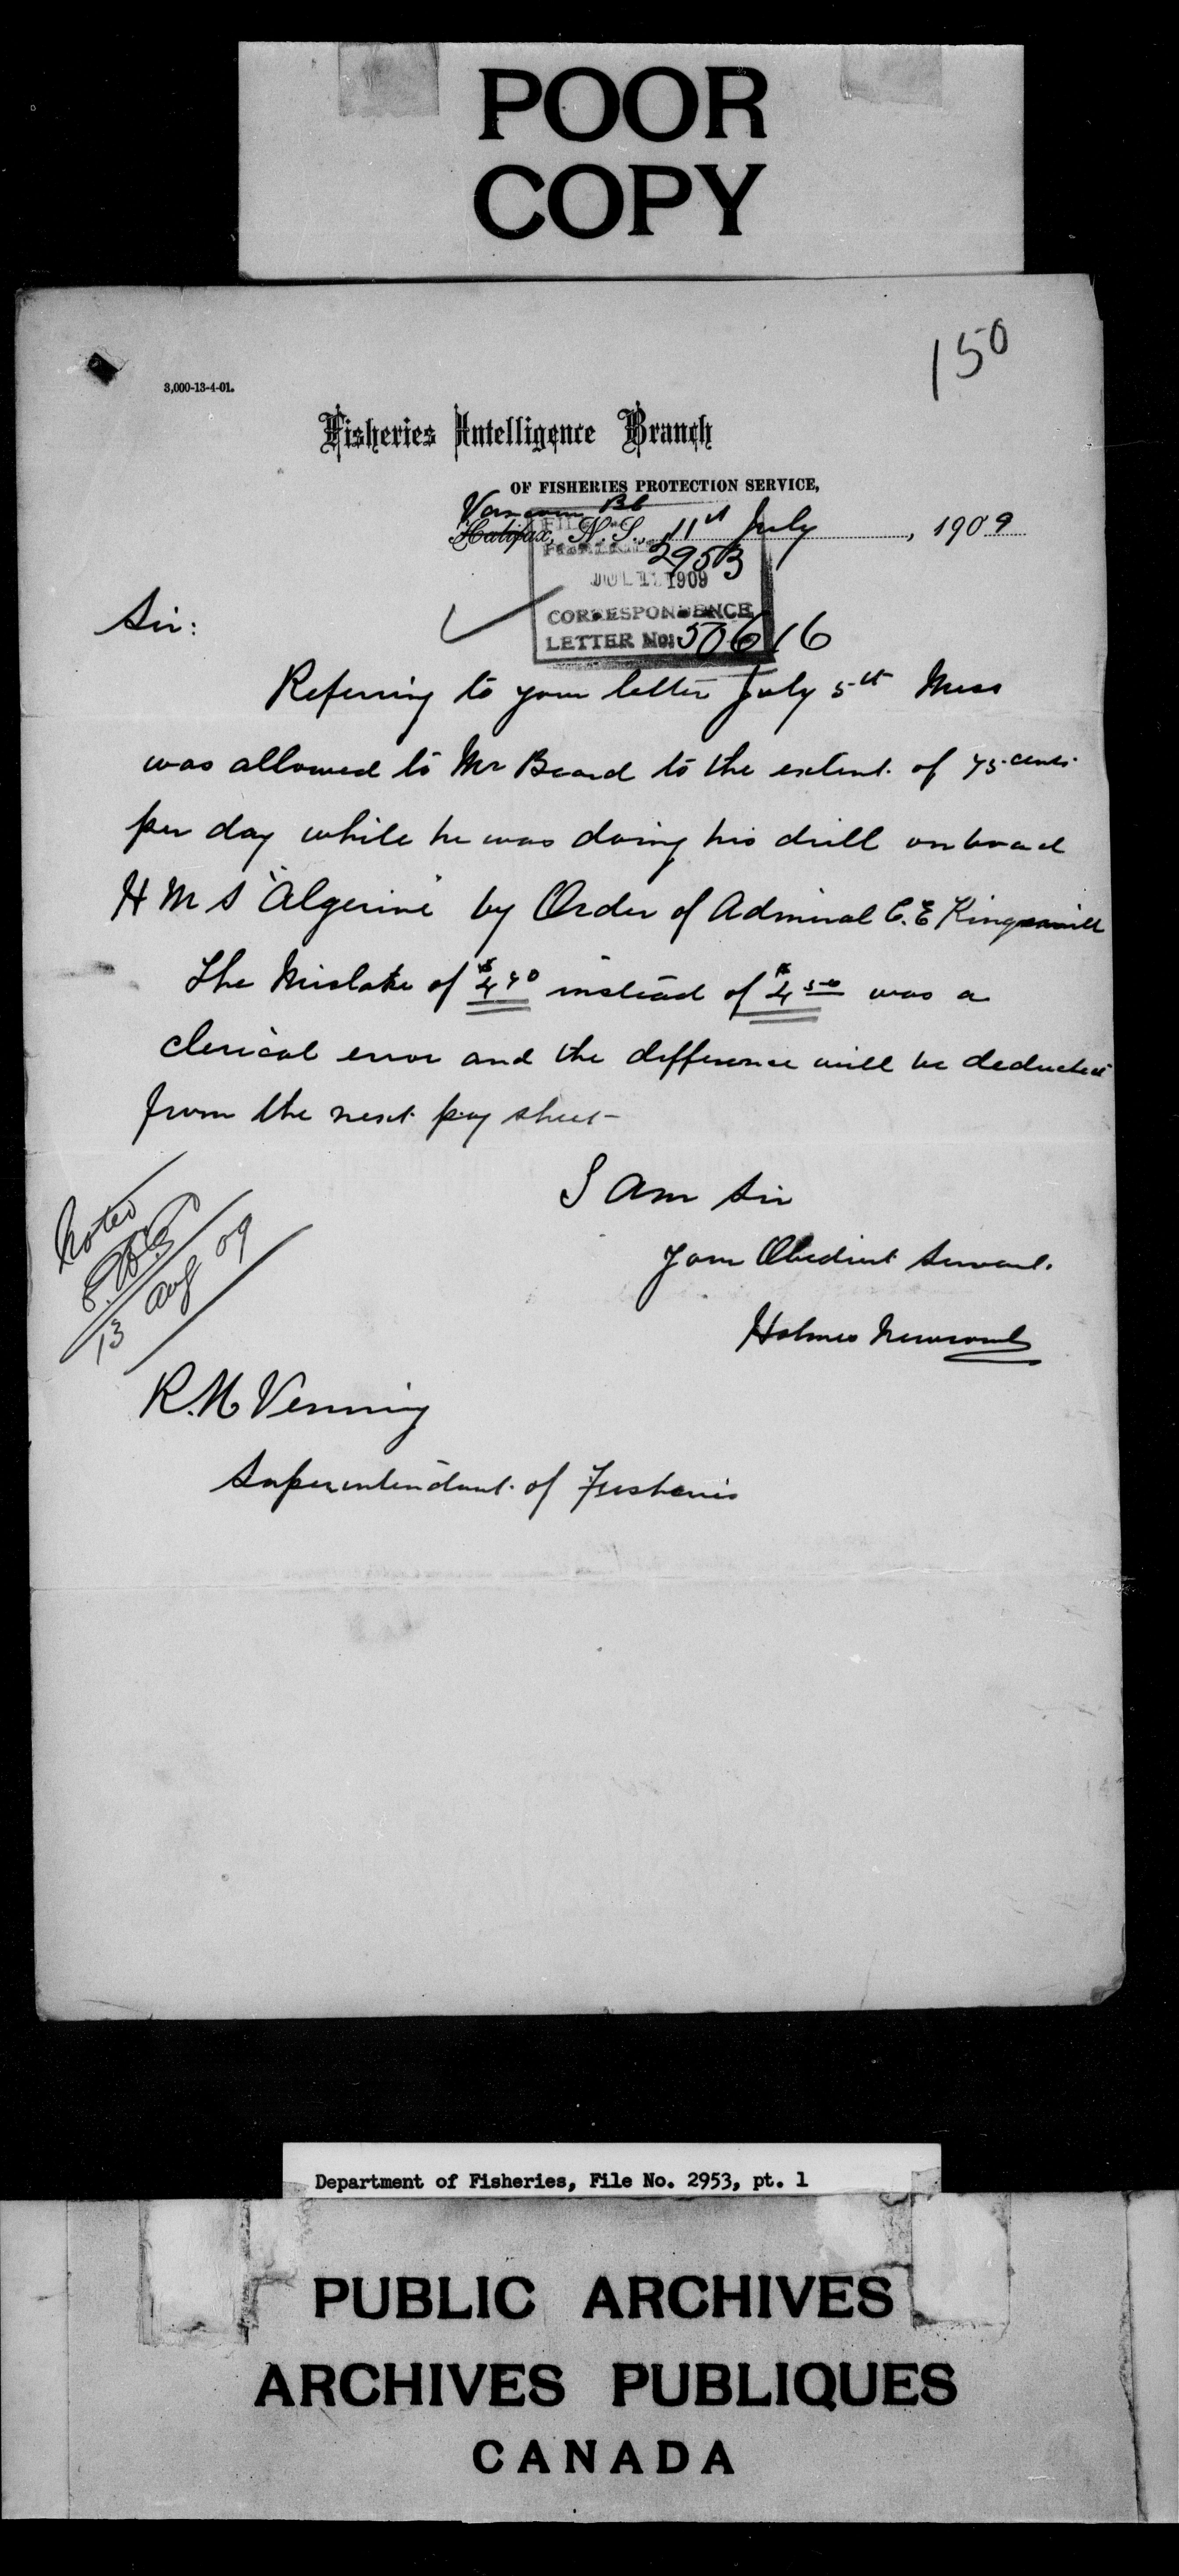 POOR
COPY
150
3,000-13-4-01.
Fisheries Intelligence Branch
OF FISHERIES PROTECTION SERVICE,
Vancouver BC
Halifax, N. S., 11th July, 1909
2953
JUL 1909
CORRESPONDENCE
LETTER No: 50616
Sir:
Referring to your letter July 5th Mess
was allowed to Mr Beard to the extent of 75 cents
per day while he was doing his drill onboard
H M S "Algerine" by Order of Admiral C. E Kingsmill
The Mistake of $4.90 instead of $4.50 was a
clerical error and the difference will be deducted
from the next pay sheet
I am Sir
Your Obedient Servant.
Holmes Newcomb
Noted
13 Aug 09
R. N Venning
Superintendant of Fisheries
Department of Fisheries, File No. 2953, pt. 1
PUBLIC ARCHIVES
ARCHIVES PUBLIQUES
CANADA